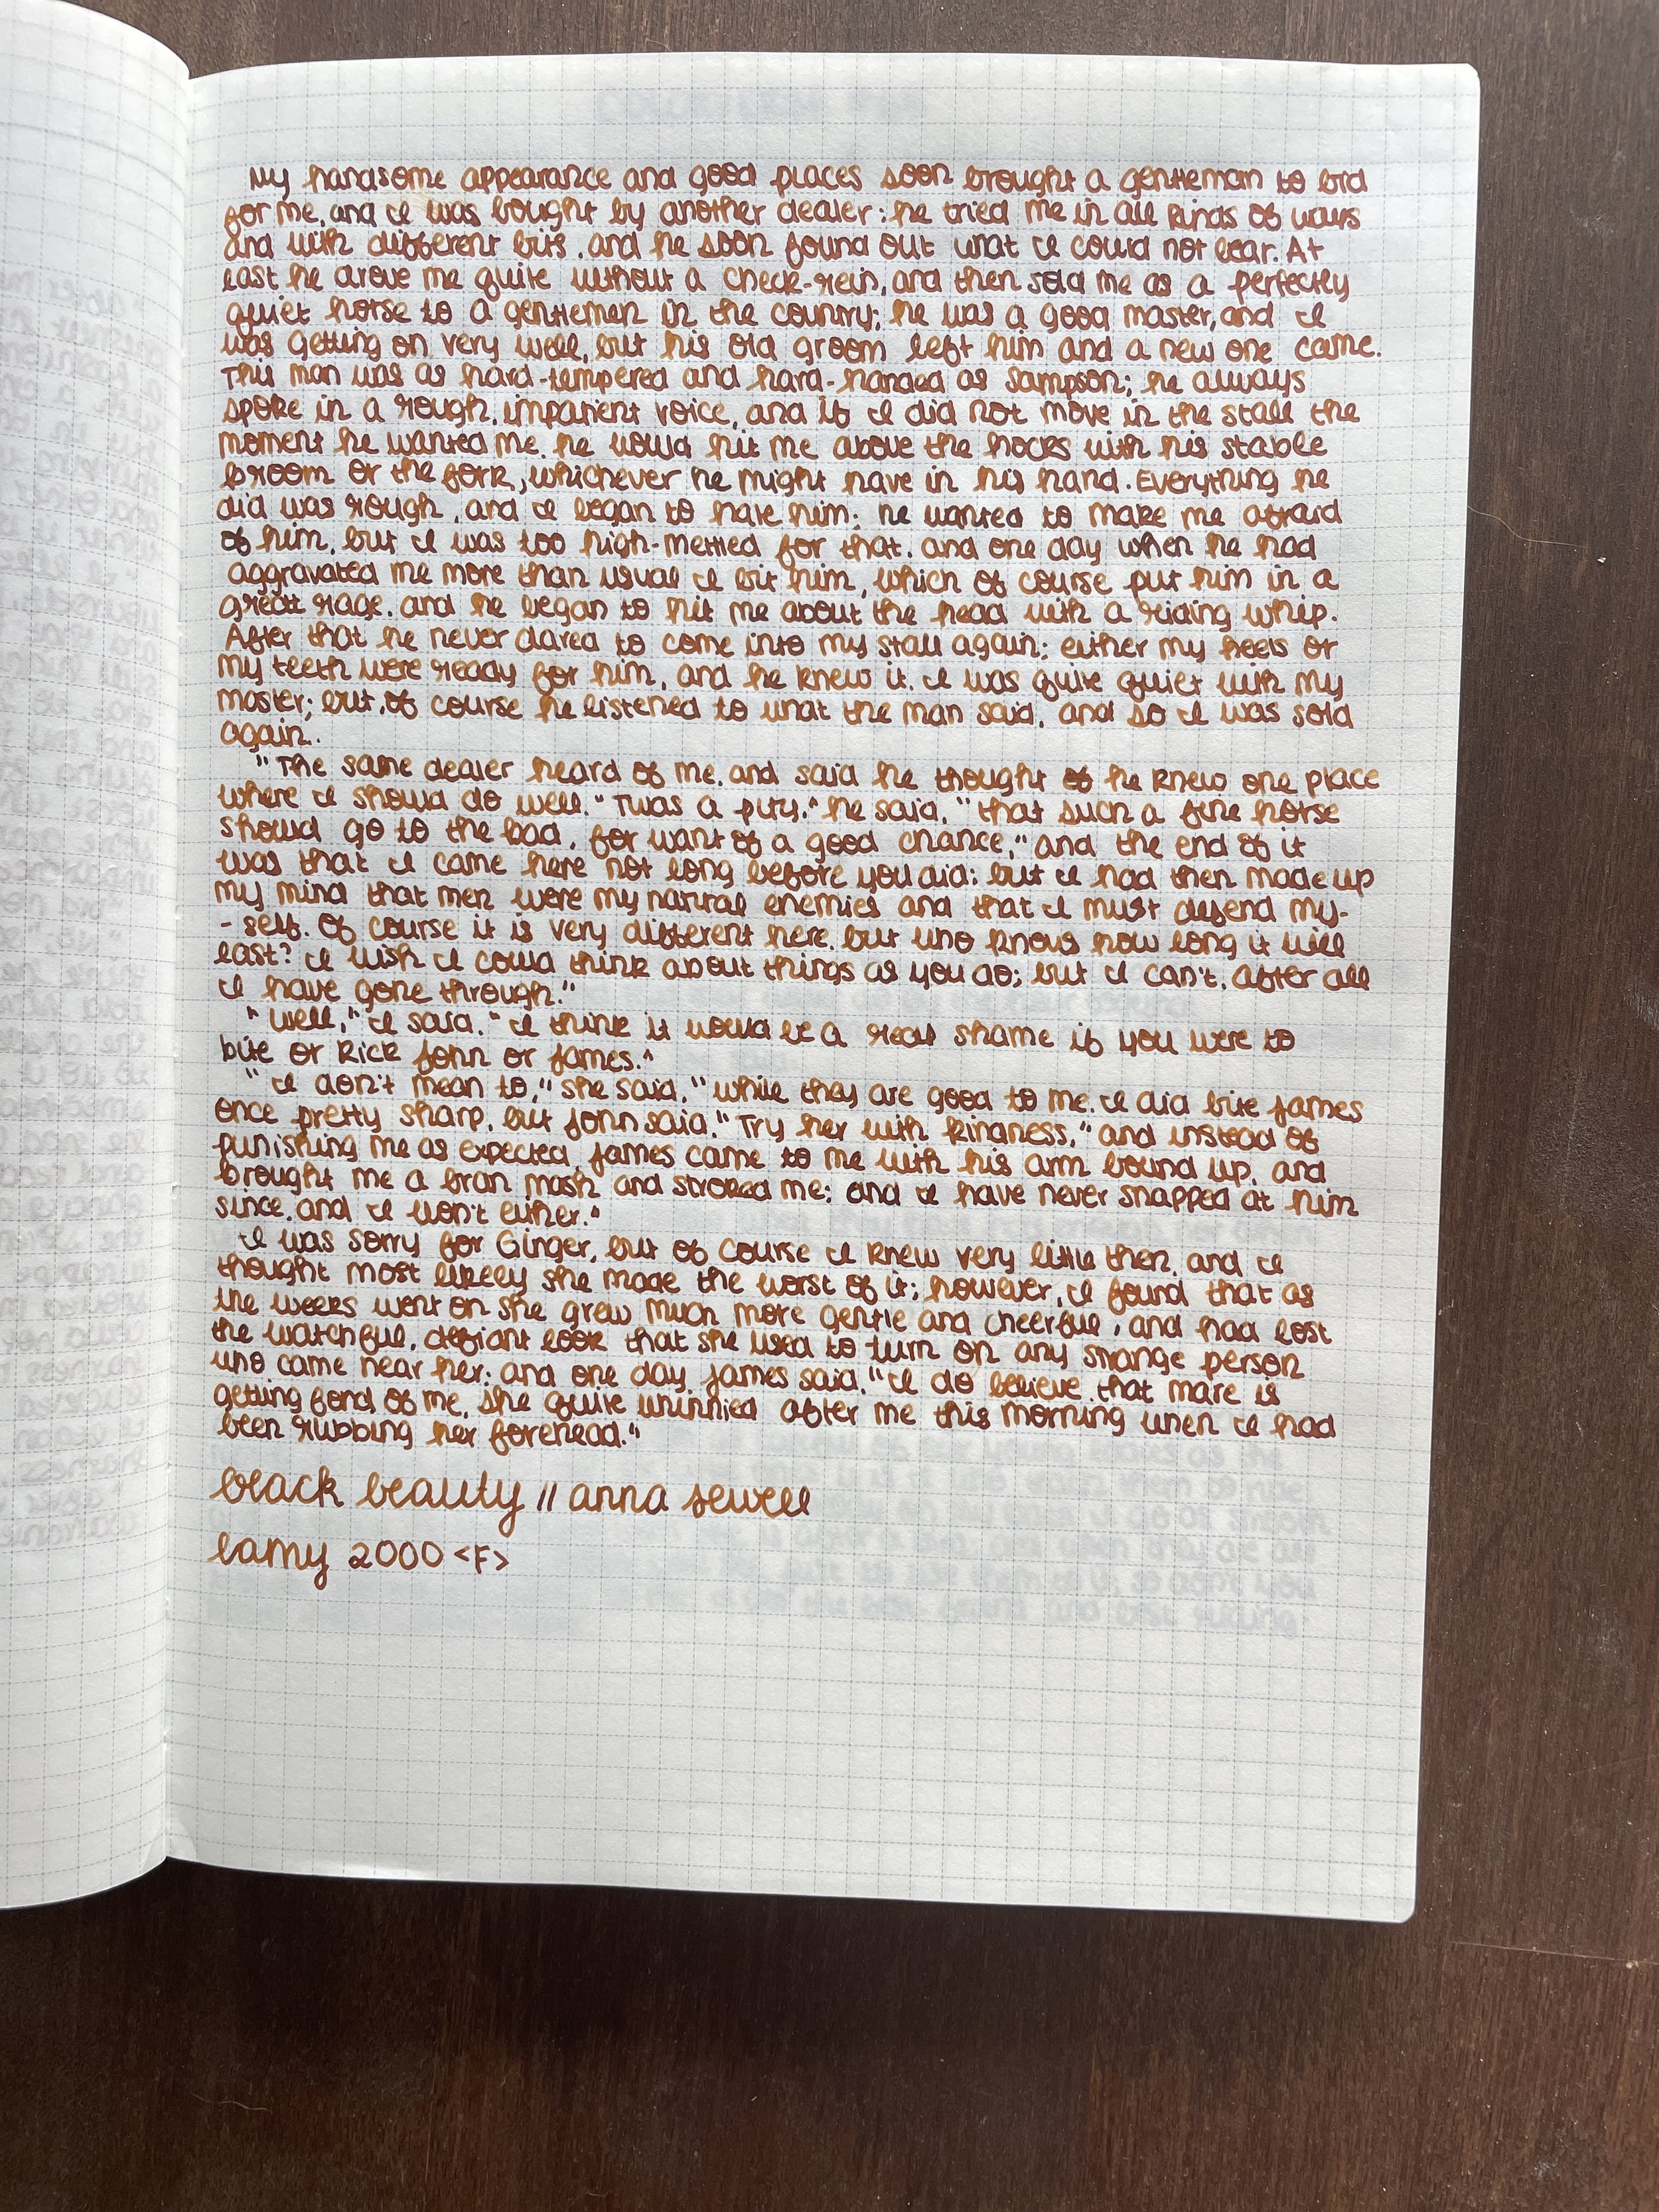 My handsome appearance and good places soon brought a gentleman to bid
for me, and I was bought by another dealer; he tried me in all kinds of ways
and with different bits, and he soon found out what I could not bear. At
last he drove me quite without a check-rein, and then sold me as a perfectly
quiet horse to a gentleman in the country; he was a good master, and I
was getting on very well, but his old groom left him and a new one came.
This man was as hard-tempered and hard-handed as Sampson; he always
spoke in a rough, impatient voice, and if I did not move in the stall the
moment he wanted me, he would hit me above the hocks with his stable
broom or the fork, whichever he might have in his hand. Everything he
did was rough, and I began to hate him; he wanted to make me afraid
of him, but I was too high-mettled for that, and one day when he had
aggravated me more than usual I bit him, which of course put him in a
great rage, and he began to hit me about the head with a riding whip.
After that he never dared to come into my stall again; either my heels or
my teeth were ready for him, and he knew it. I was quite quiet with my
master; but, of course he listened to what the man said, and so I was sold
again.
"The same dealer heard of me, and said he thought he knew one place
where I should do well. "Twas a pity," he said, "that such a fine horse
should go to the bad, for want of a good chance," and the end of it
was that I came here not long before you did; but I had then made up
my mind that men were my natural enemies and that I must defend my-
-self. Of course it is very different here, but who knows how long it will
last? I wish I could think about things as you do; but I can't, after all
I have gone through."
"Well," I said, "I think it would be a real shame if you were to
bite or kick John or James."
"I don't mean to," she said, "while they are good to me. I did bite James
once pretty sharp, but John said, "Try her with kindness," and instead of
punishing me as expected, James came to me with his arm bound up, and
brought me a bran mash and stroked me; and I have never snapped at him
since, and I won't either."
I was sorry for Ginger, but of course I knew very little then, and I
thought most likely she made the worst of it; however, I found that as
the weeks went on she grew much more gentle and cheerful, and had lost
the watchful, defiant look that she used to turn on any strange person
who came near her; and one day James said, "I do believe that mare is
getting fond of me, she quite whinnied after me this morning when I had
been rubbing her forehead."
black beauty // anna sewell
lamy 2000 <F>